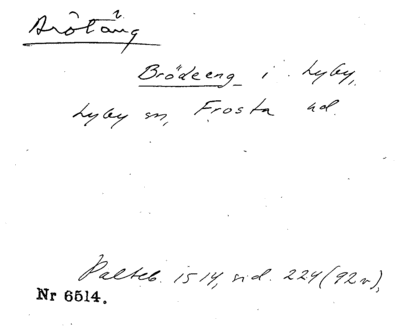 Brötäng
Brödeeng i Lyby,
Lyby sn, Frosta hd.
Palteb. 1514, sid. 224 (92v),
Nr 6514.